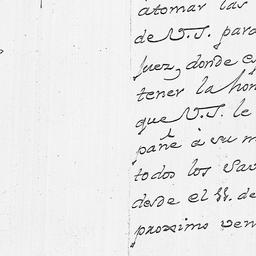 atomar las
de V.S. para
juez, donde es
tener la hon
que V.S. le
pañe à su m
todos los Sav
desde el 11. de
proximo ven